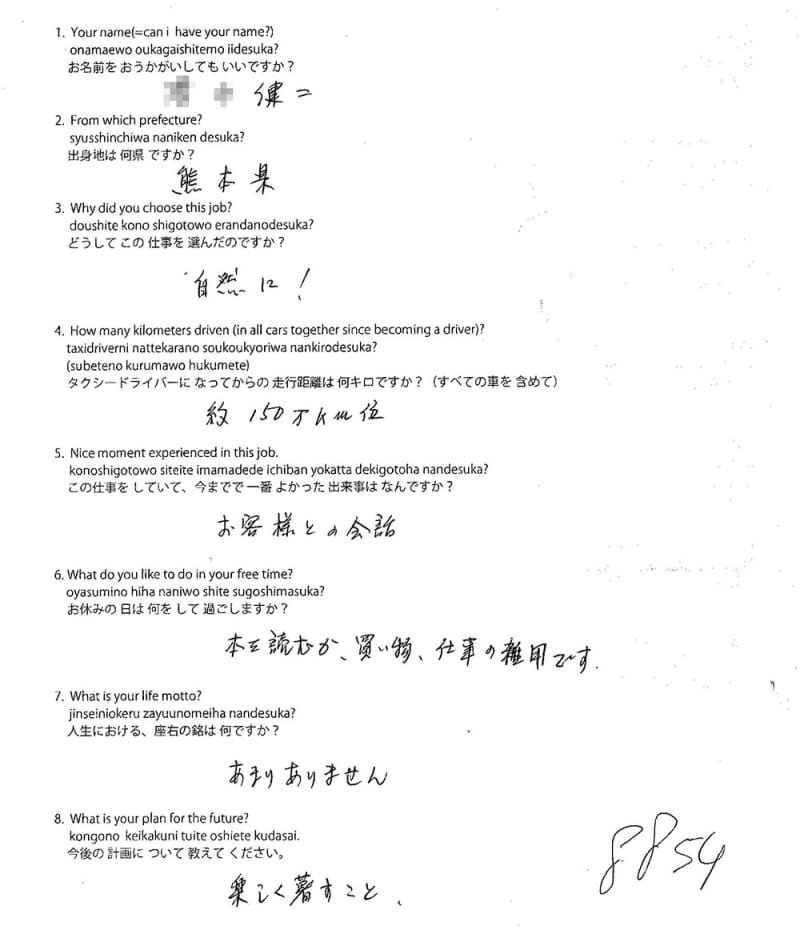 1. Your name(=can i have your name?)
onamaewo oukagaishitemo iidesuka?
お名前を おうかがいしても いいですか？
健二
2. From which prefecture?
syusshinchiwa naniken desuka?
出身地は 何県 ですか？
熊本県
3. Why did you choose this job?
doushite kono shigotowo erandanodesuka?
どうして この 仕事を 選んだのですか？
自然に！
4. How many kilometers driven (in all cars together since becoming a driver)?
taxidriverni nattekarano soukoukyoriwa nankirodesuka?
(subeteno kurumawo hukumete)
タクシードライバーに なってからの 走行距離は 何キロですか？（すべての車を 含めて）
約150万km位
5. Nice moment experienced in this job.
konoshigotowo siteite imamadede ichiban yokatta dekigotoha nandesuka?
この仕事を していて、今までで 一番 よかった 出来事は なんですか？
お客様との会話
6. What do you like to do in your free time?
oyasumino hiha naniwo shite sugoshimasuka?
お休みの 日は 何を して 過ごしますか？
本を読むか、買い物、仕事の雑用です.
7. What is your life motto?
jinseiniokeru zayuunomeiha nandesuka?
人生における、座右の銘は 何ですか？
あまりありません
8. What is your plan for the future?
kongono keikakuni tuite oshiete kudasai.
今後の 計画に ついて 教えて ください。
楽しく暮すこと、
8854